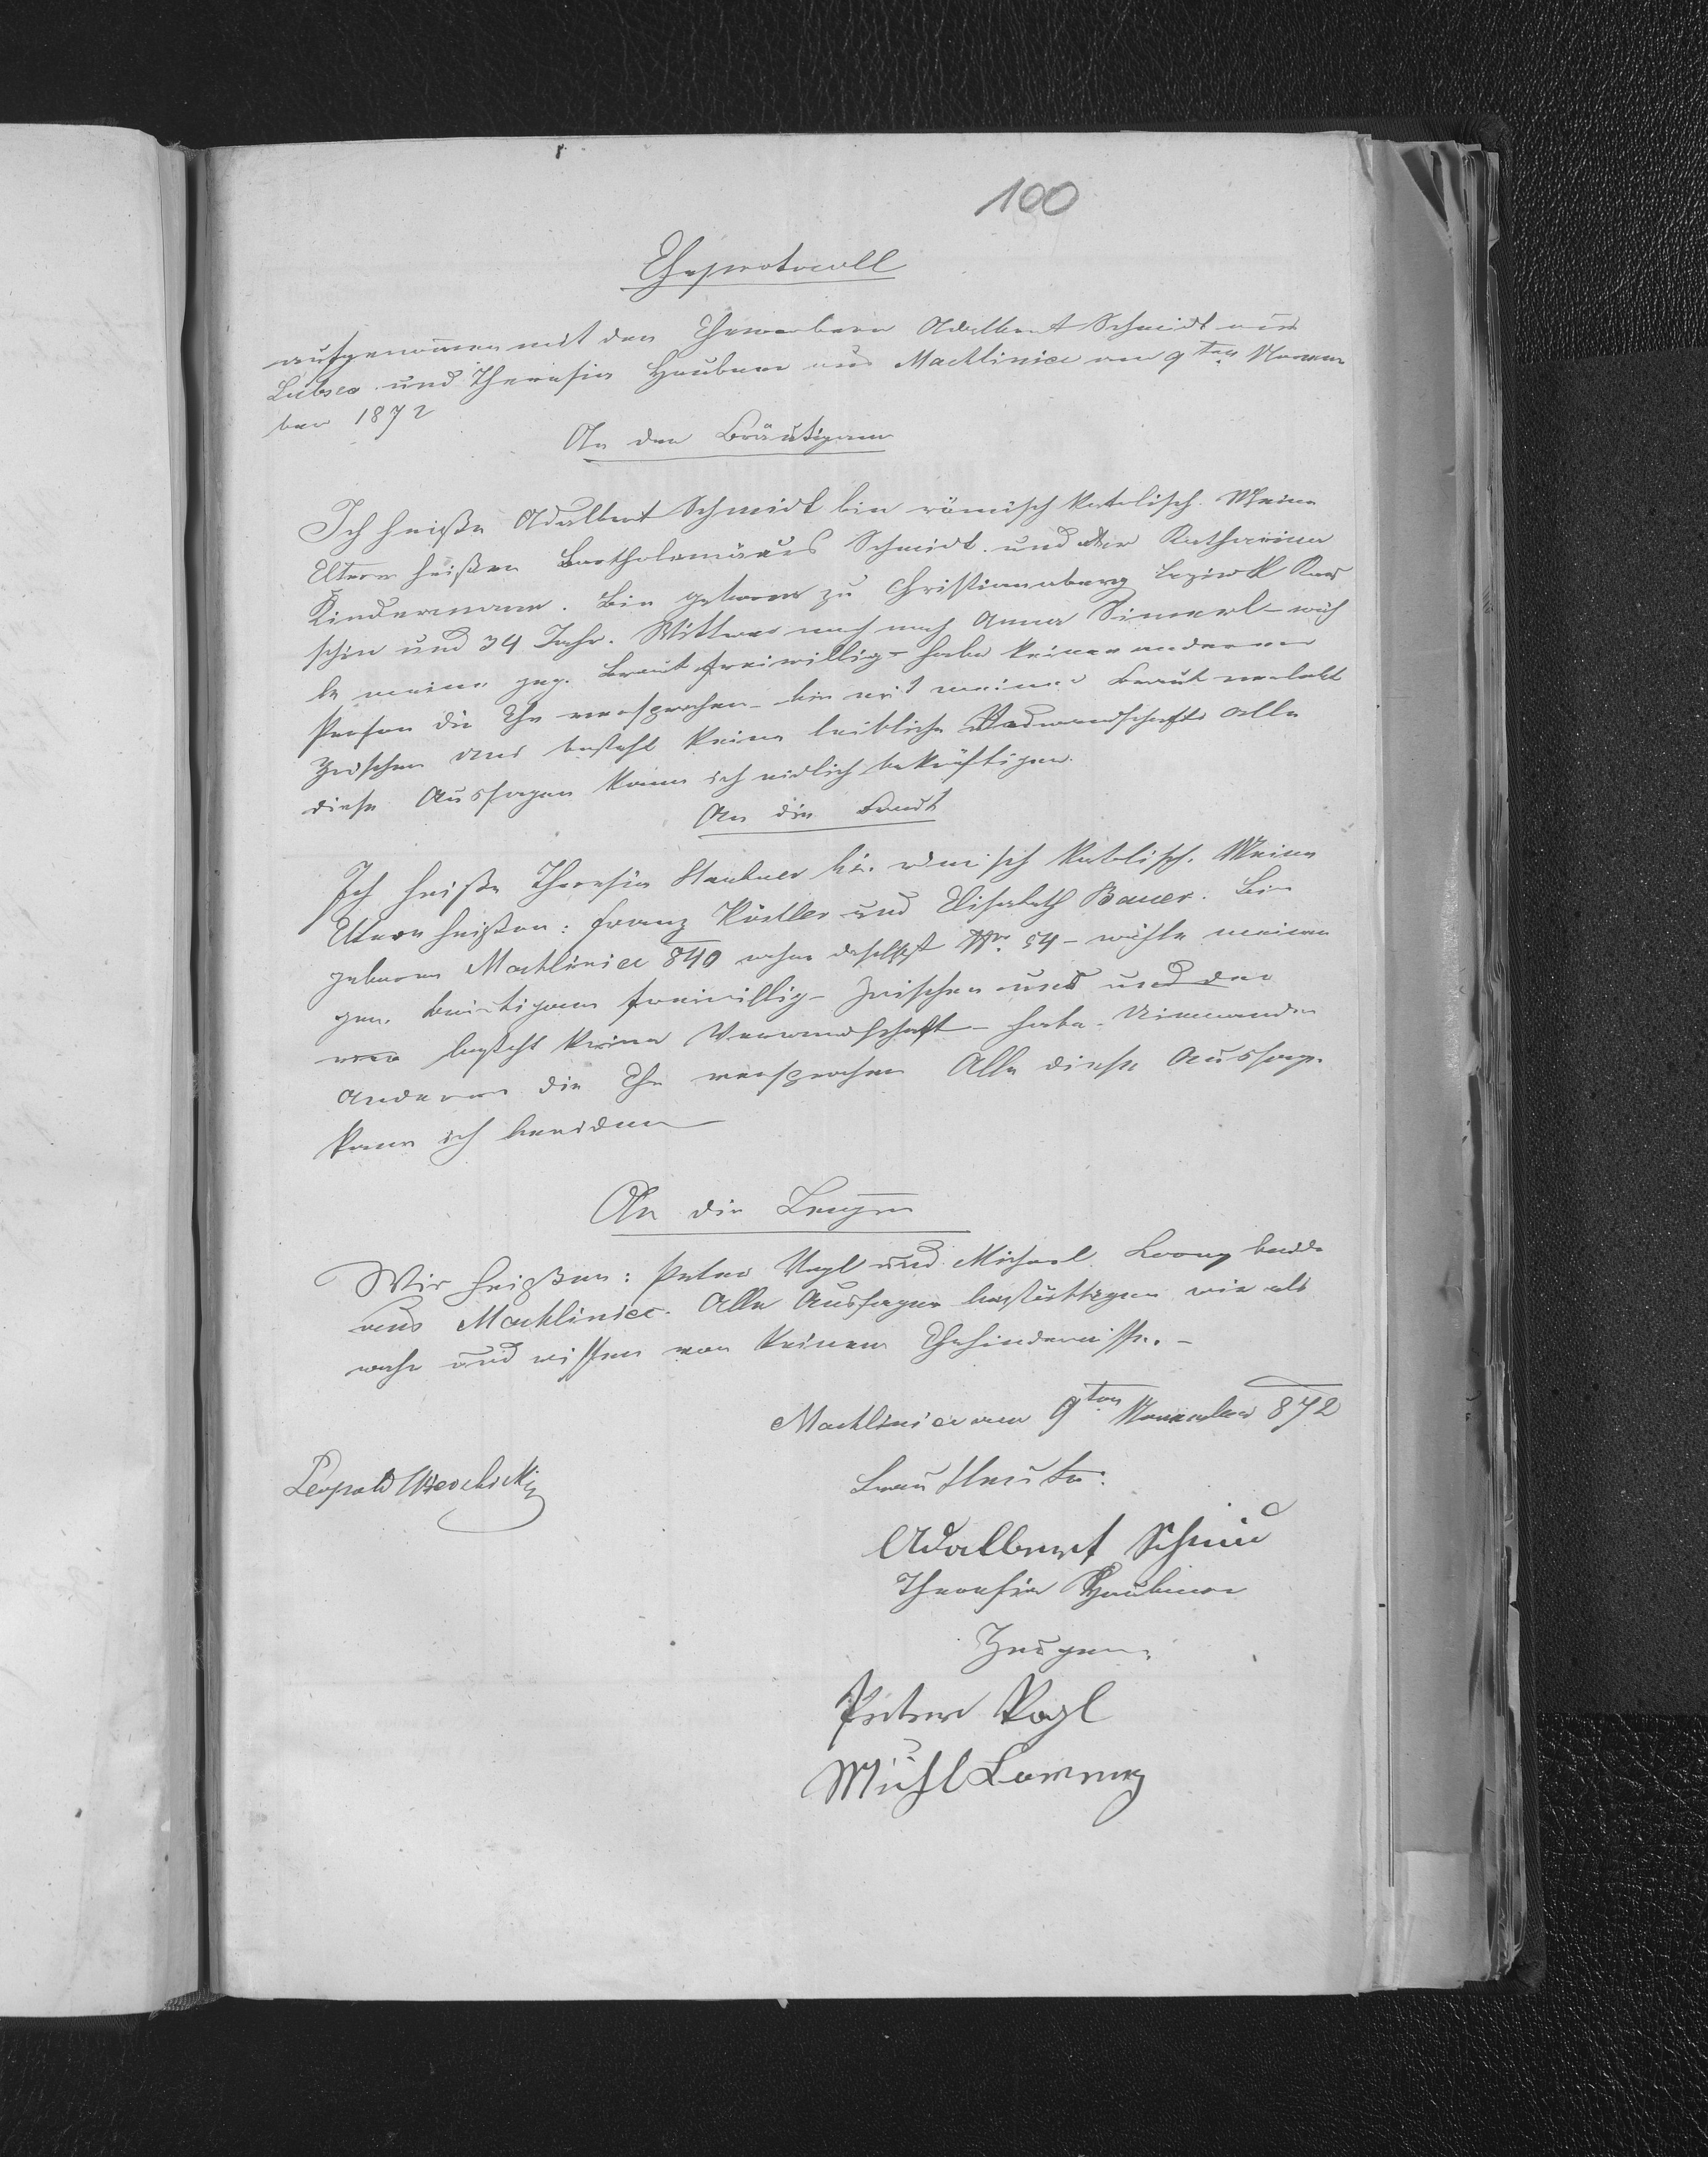 100
Eheprotocoll
aufgenomen mit den Ehewerbern Adalbert Schmidt aus
und Theresia Haubner aus Machliniec am 9ten Novem
ber 1872
An den Bräutigam
Ich heiße Adalbert Schmidt bin römisch katolisch. Meine
Eltern heißen Bartholomäus Schmidt und der Katharina
Kindermann. Bin geboren zu Christianenberg bezirk
und 34 Jahr. Wittwer nach nach Anna wäh
le meine geg. Braut freiwillig - habe keiner anderen
Person die Ehe versprochen - bin mit meiner Braut
Zwischen uns besteht keine leibliche alle
diese Aussagen kann ich eidlich bekräftigen.
An die Braut
Ich heiße Theresia Haubner bin römisch katolisch. Meine
Eltern heißen: Franz Köstler und Elisabeth Bauer. Bin
geboren Machliniec 840 wohne daselbst Nr 54 - wähle meinen
geg. Bräutigam freiwillig - Zwischen uns und der
besteht keine Verwandschaft - habe Niemanden
Anderen die Ehe versprochen Alle diese Aussage
kann ich beeiden
An die Zeugen
Wir heißen: Peter Vogl und Michael beide
aus Machliniec. Alle Aussagen bestättigen wir als
wahr und wissen von keinem Ehehindernisse. -
Machliniec am 9ten November 872
Leopold
Brautleute:
Adalbert Schmid
Theresia Haubner
Zeugen:
Peter Vogl